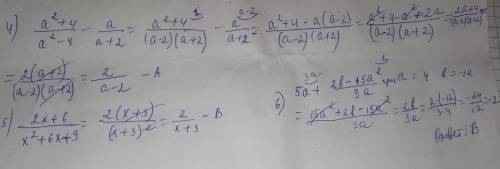 4) (a²+4)/(a²-4) - a/(a+2) = (a²+4)/((a-2)(a+2)) - a/(a+2) = (a²+4-a(a-2))/((a-2)(a+2)) = (a²+4-a²+2a)/((a-2)(a+2)) = (2a+4)/((a-2)(a+2)) =
= 2(a+2)/((a-2)(a+2)) = 2/(a-2) - A
5) (2x+6)/(x²+6x+9) = 2(x+3)/(x+3)² = 2/(x+3) - B
6) 5a + (2b-15a²)/3a при a=4 b=-12
= (15a²+2b-15a²)/3a = 2b/3a = 2·(-12)/3·4 = -24/12 = -2
Ответ: B